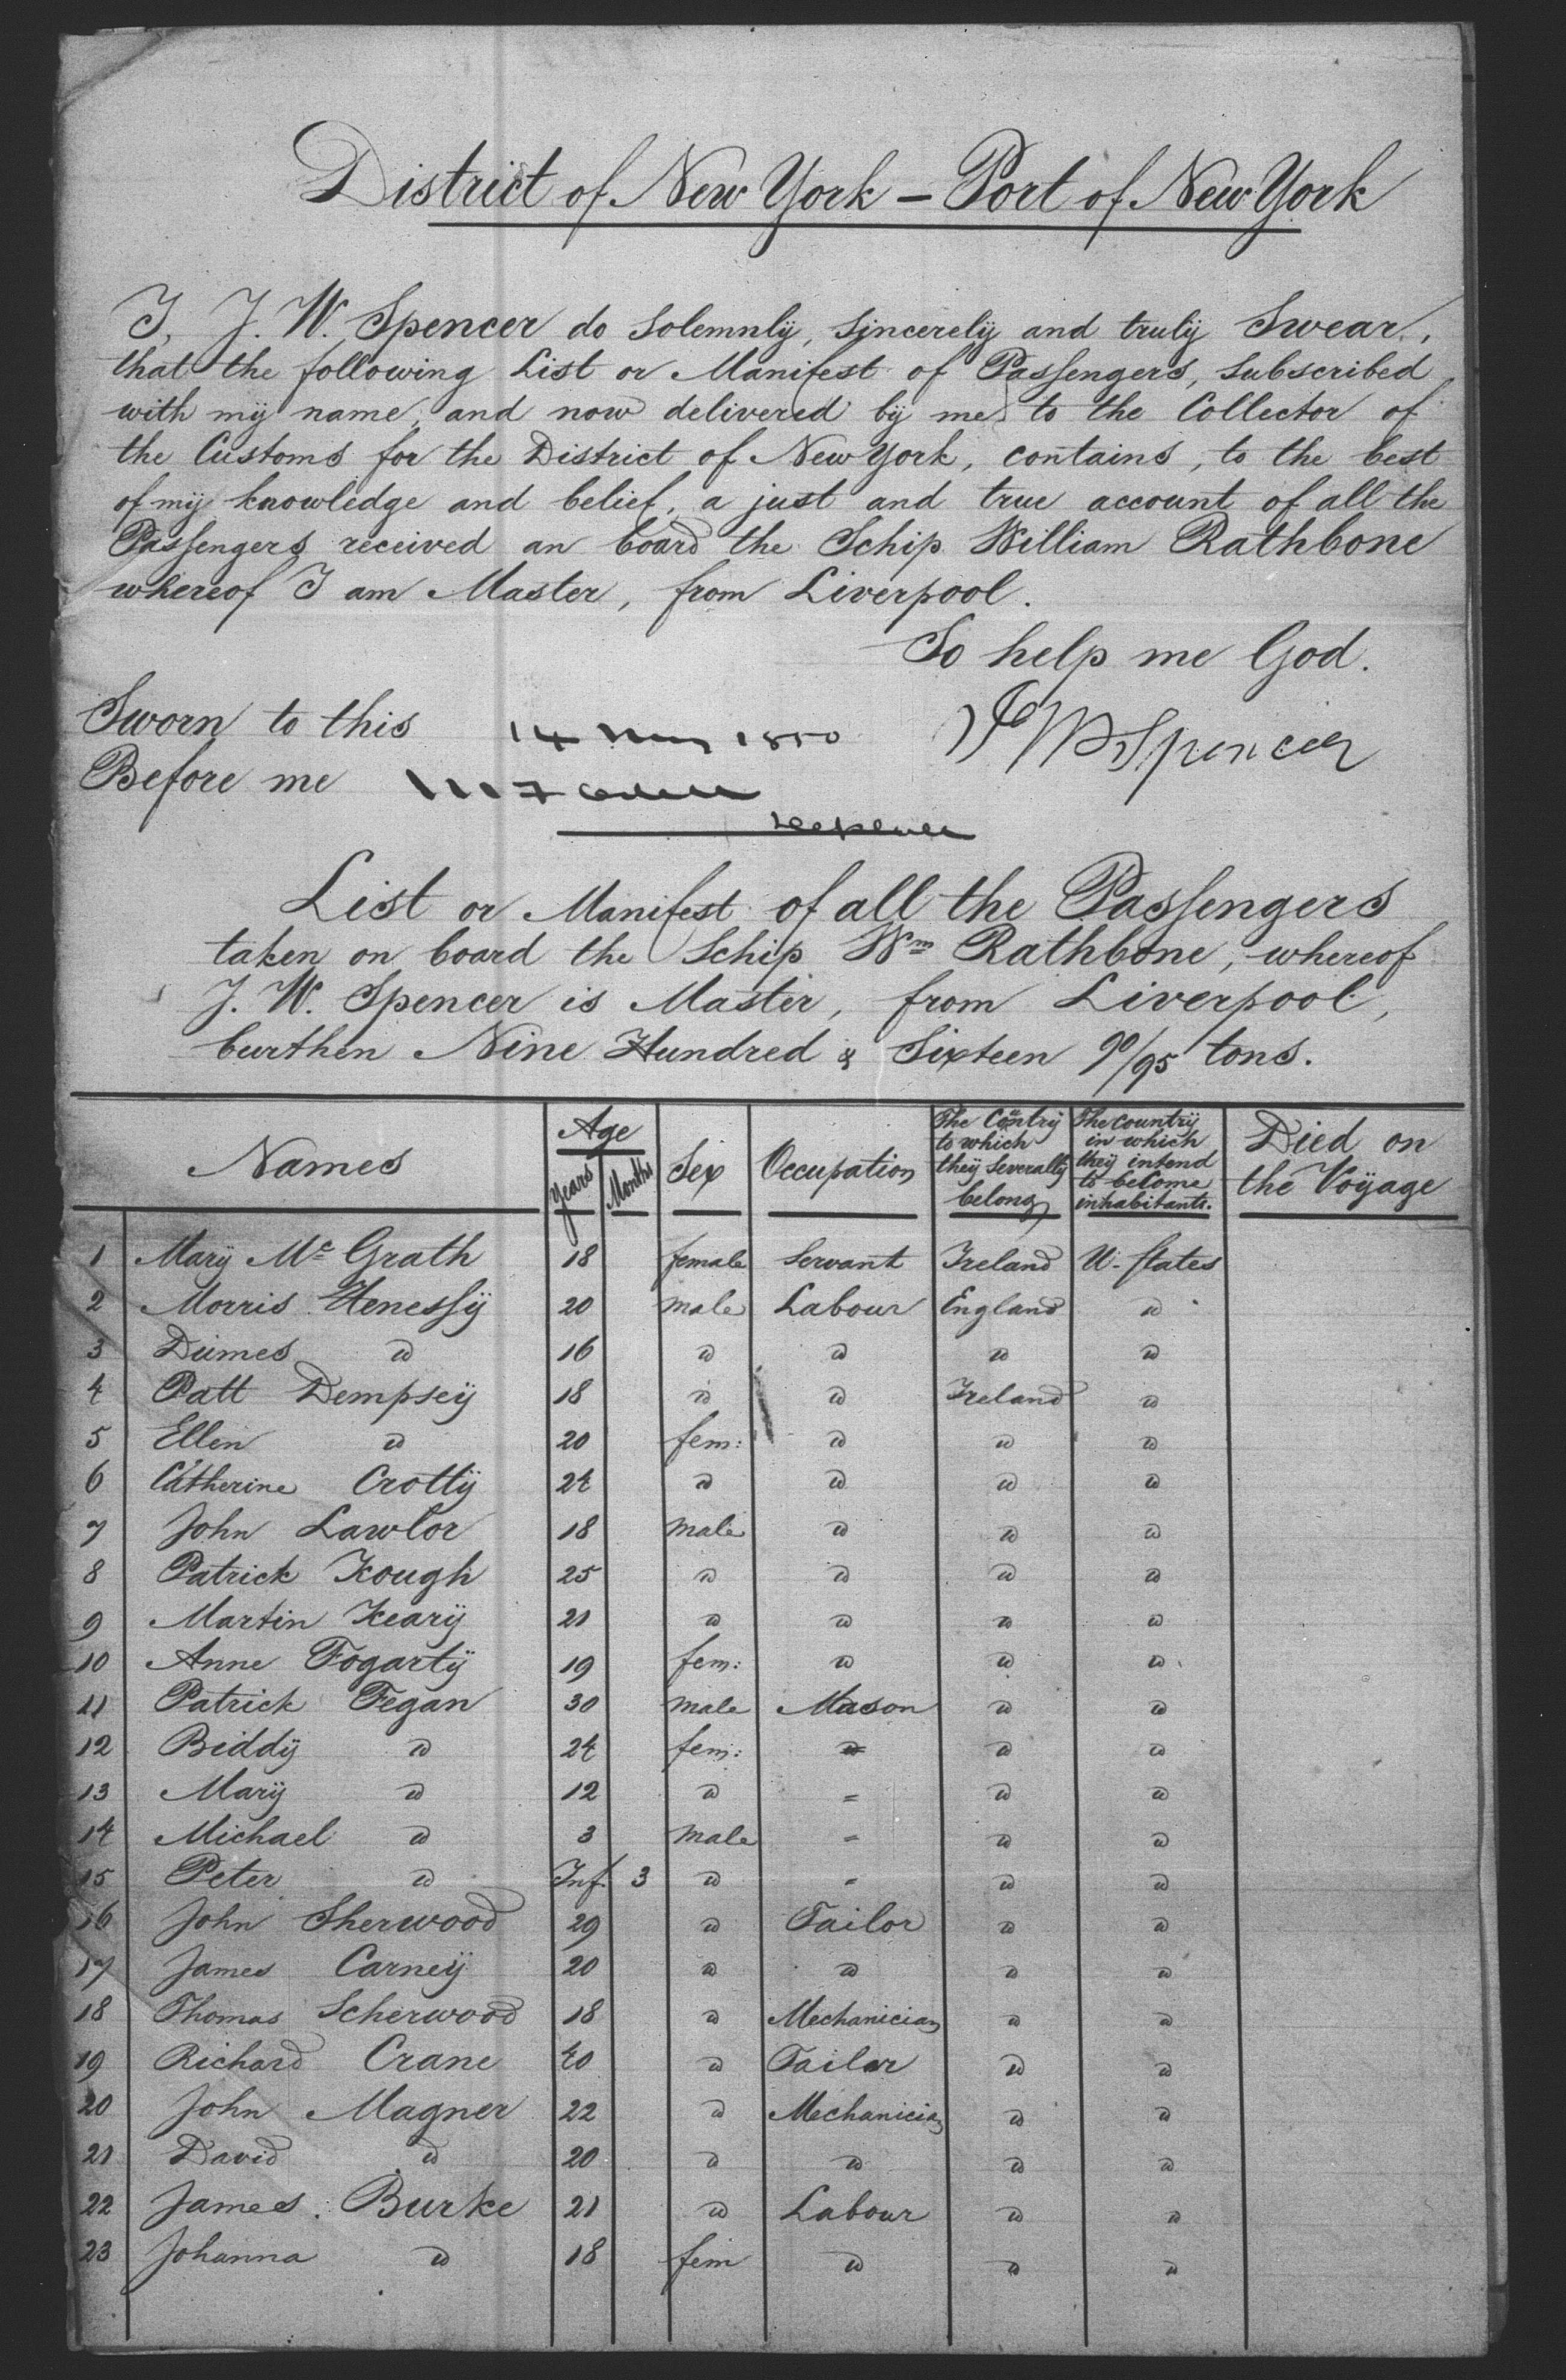 District of New York – Port of New York
I, J. W. Spencer do Solemnly, Sincerely and truly Swear,
that the following List or Manifest of Passengers, subscribed
with my name, and now delivered by me to the Collector of
the Customs for the District of New York, contains, to the best
of my knowledge and belief, a just and true account of all the
Passengers received an board the Schip William Rathbone
whereof I am Master, from Liverpool.
So help me God.
Sworn to this 14 1850 JW Spencer
Before me
List or Manifest of all the Passengers
taken on board the Schip Wm Rathbone, whereof
J. W. Spencer is Master, from Liverpool,
burthen Nine Hundred & Sixteen 90/95 tons.
Names Age Years Months Sex Occupation The Country to which they severally belong The country in which they intend to become inhabitants. Died on the Voyage
1 Mary Mc Grath 18 female Servant Ireland U. States
2 Morris Henessy 20 male Labour England d
3 Dumes d 16 d d d d
4 Patt Dempsey 18 d d Ireland d
5 Ellen d 20 fem: d d d
6 Catherine Crotty 24 d d d d
7 John Lawlor 18 male d d d
8 Patrick Keough 25 d d d d
9 Martin Keary 21 d d d d
10 Anne Fogarty 19 fem: d d d
11 Patrick Fegan 30 male Mason d d
12 Biddy d 24 fem: d d
13 Mary d 12 d = d d
14 Michael d 3 male = d d
15 Peter d Inf. 3 d = d d
16 John Sherwood 29 d Tailor d d
17 James Carney 20 d d d d
18 Thomas Scherwood 18 d Mechanician d d
19 Richard Crane 40 d Tailor d d
20 John Magner 22 d Mechanician d d
21 David d 20 d d d d
22 James Burke 21 d Labour d d
23 Johanna d 18 fem d d d